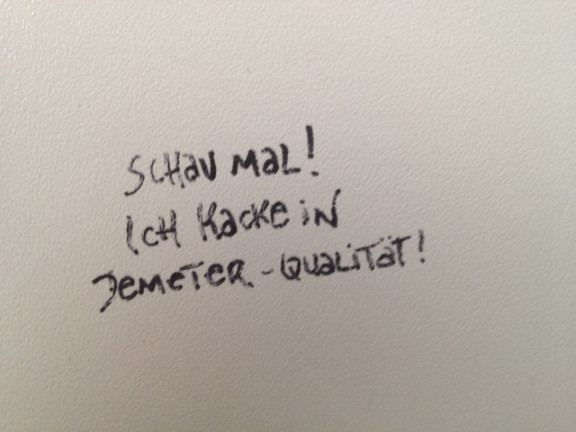 SCHAU MAL!
ICH KACKE IN
DEMETER-QUALITÄT!